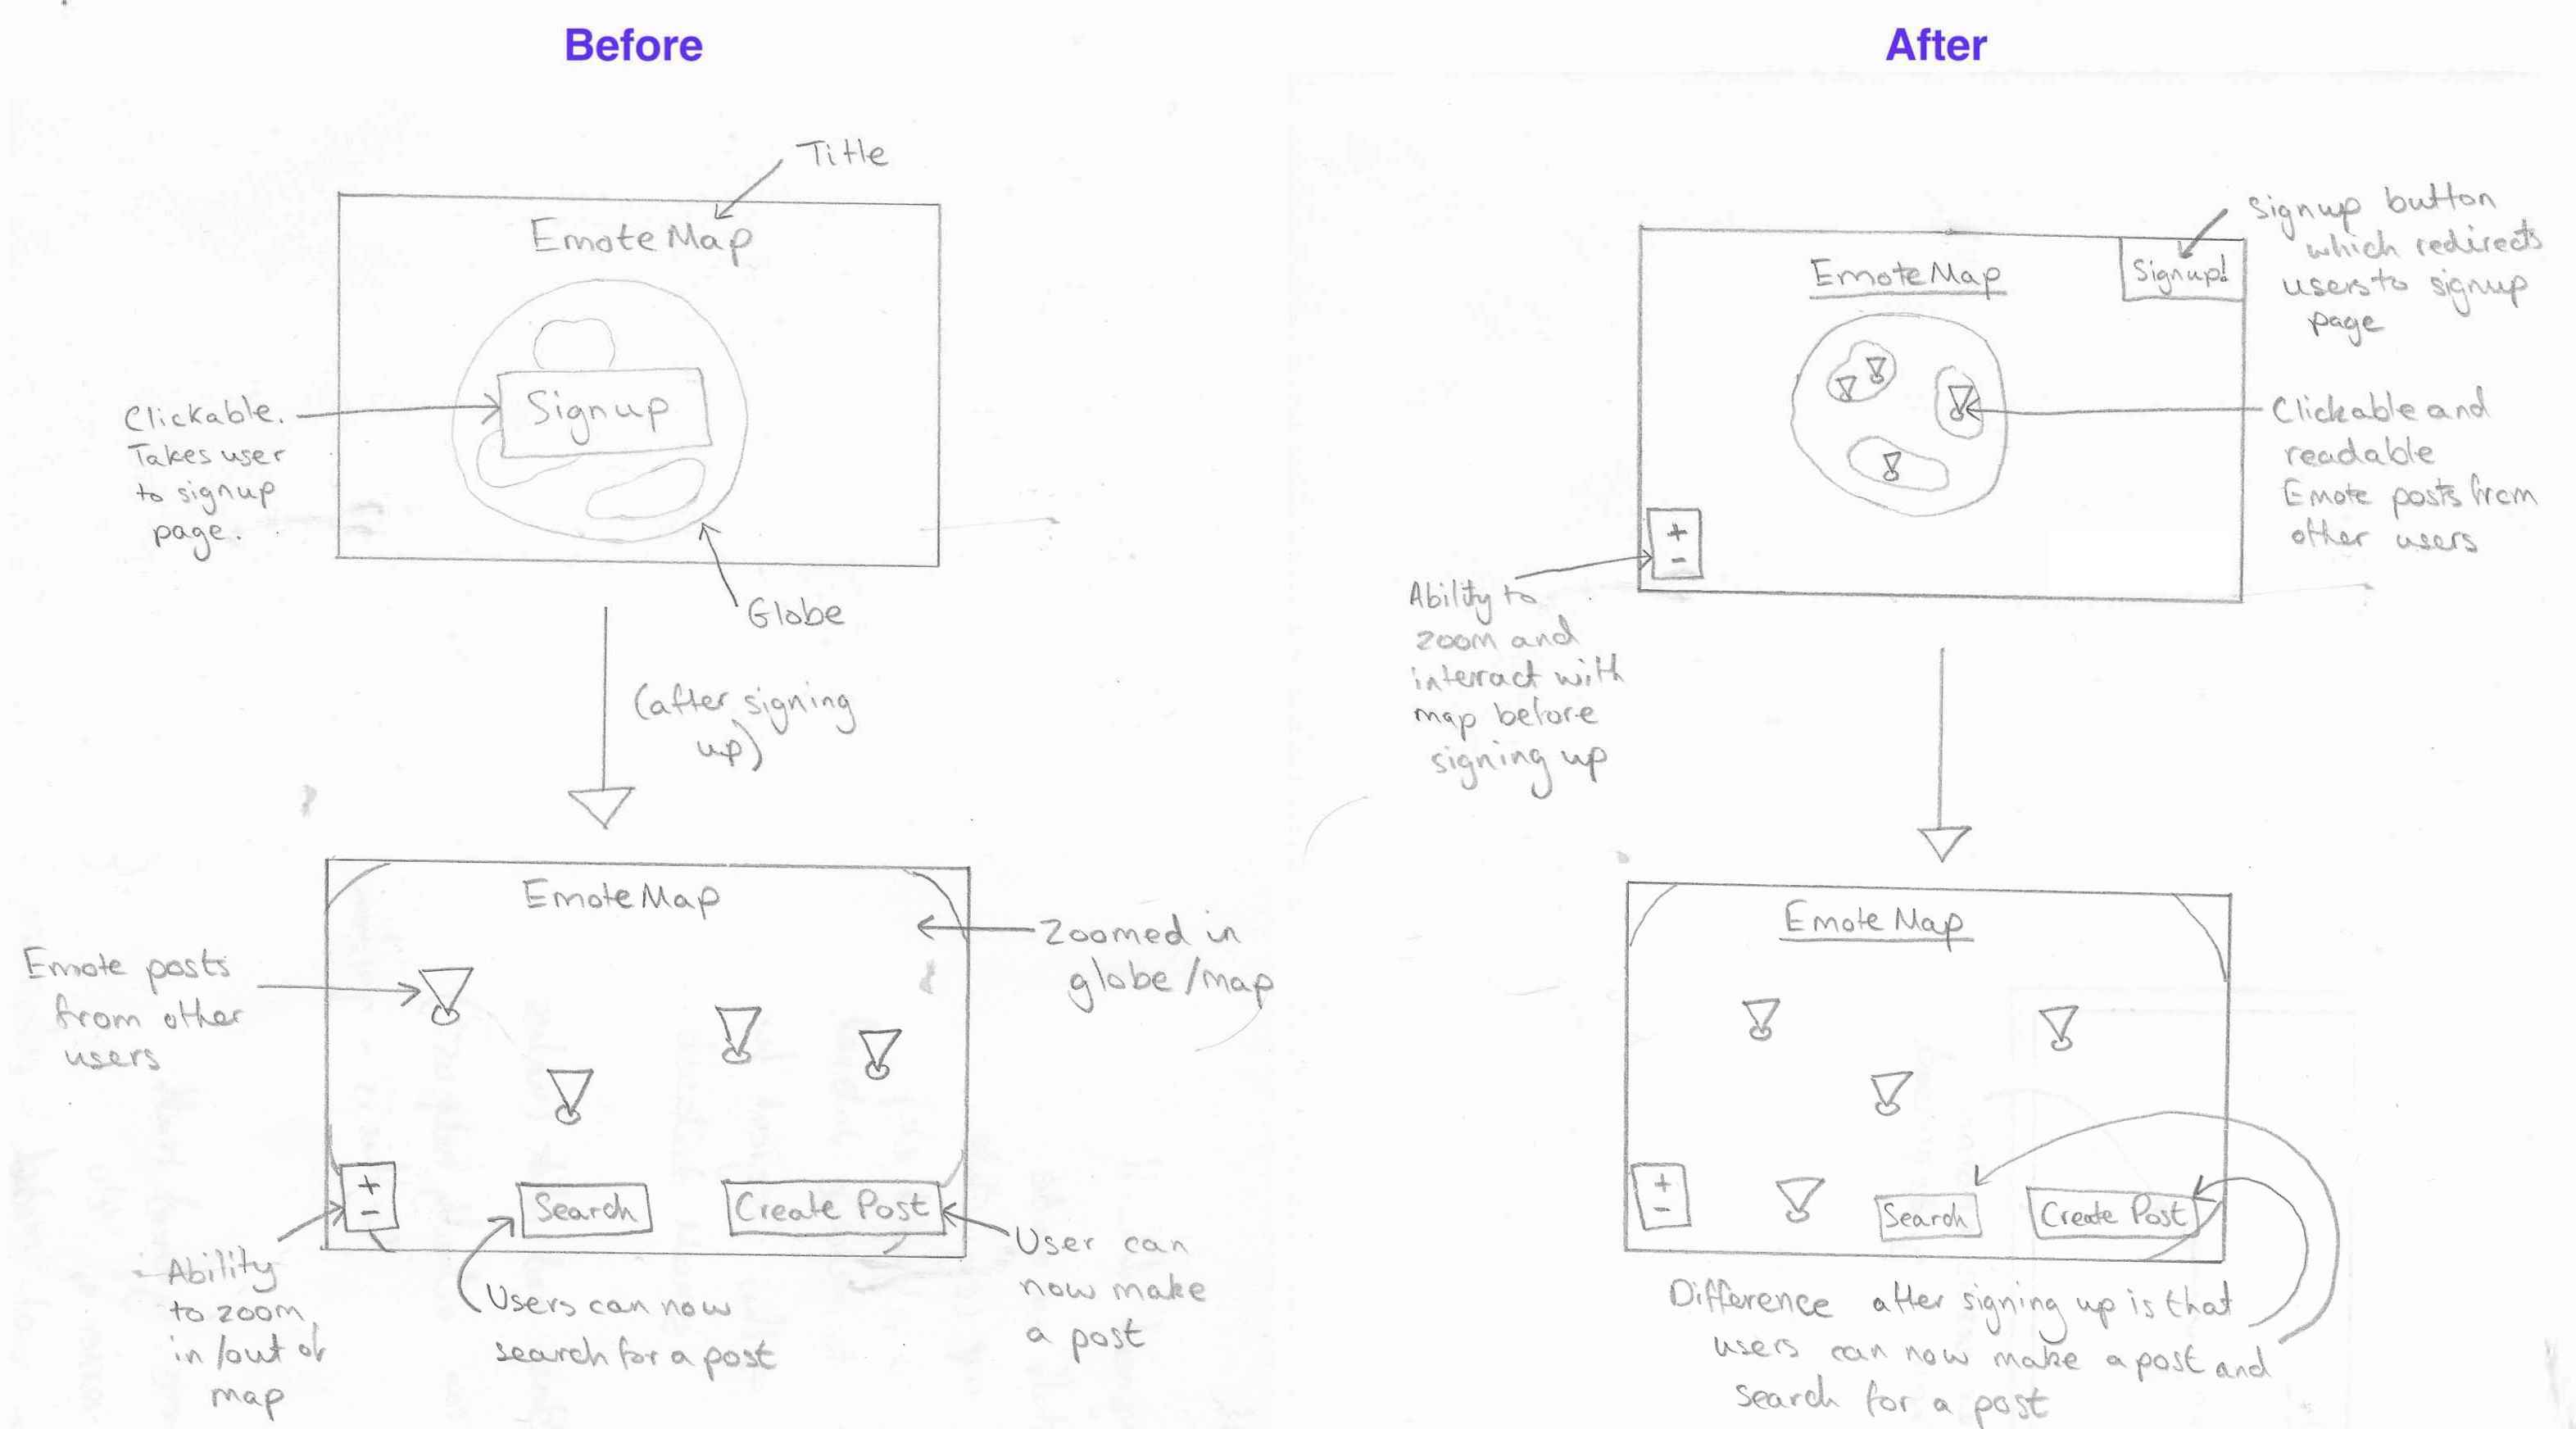 Before
Title
EmoteMap
Signup
Clickable.
Takes user
to signup
page.
Globe
(after signing
up)
EmoteMap
Zoomed in
globe/map
Emote posts
from other
users
+
-
Search
Create Post
Ability
to zoom
in/out of
map
Users can now
search for a post
User can
now make
a post
After
Signup button
which redirects
users to signup
page
EmoteMap
Signup!
Clickable and
readable
Emote posts from
other users
+
-
Ability to
zoom and
interact with
map before
signing up
EmoteMap
+
-
Search
Create Post
Difference after signing up is that
users can now make a post and
search for a post